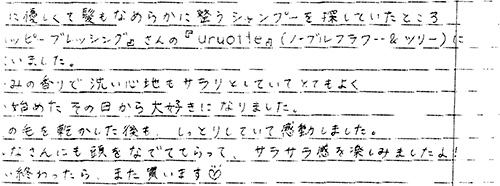 に優しくて髪もなめらかに整うシャンプーを探していたところ
ッピーブレッシング』さんの『uruotte』(ノーブルフラワー&ツリー)に
いました。
みの香りで洗い心地もサラリとしていてとてもよく
始めたその日から大好きになりました。
の毛を乾かした後も、しっとりしていて感動しました。
なさんにも頭をなでてもらって、サラサラ感を楽しみましたよ!
終わったら、また買います♡